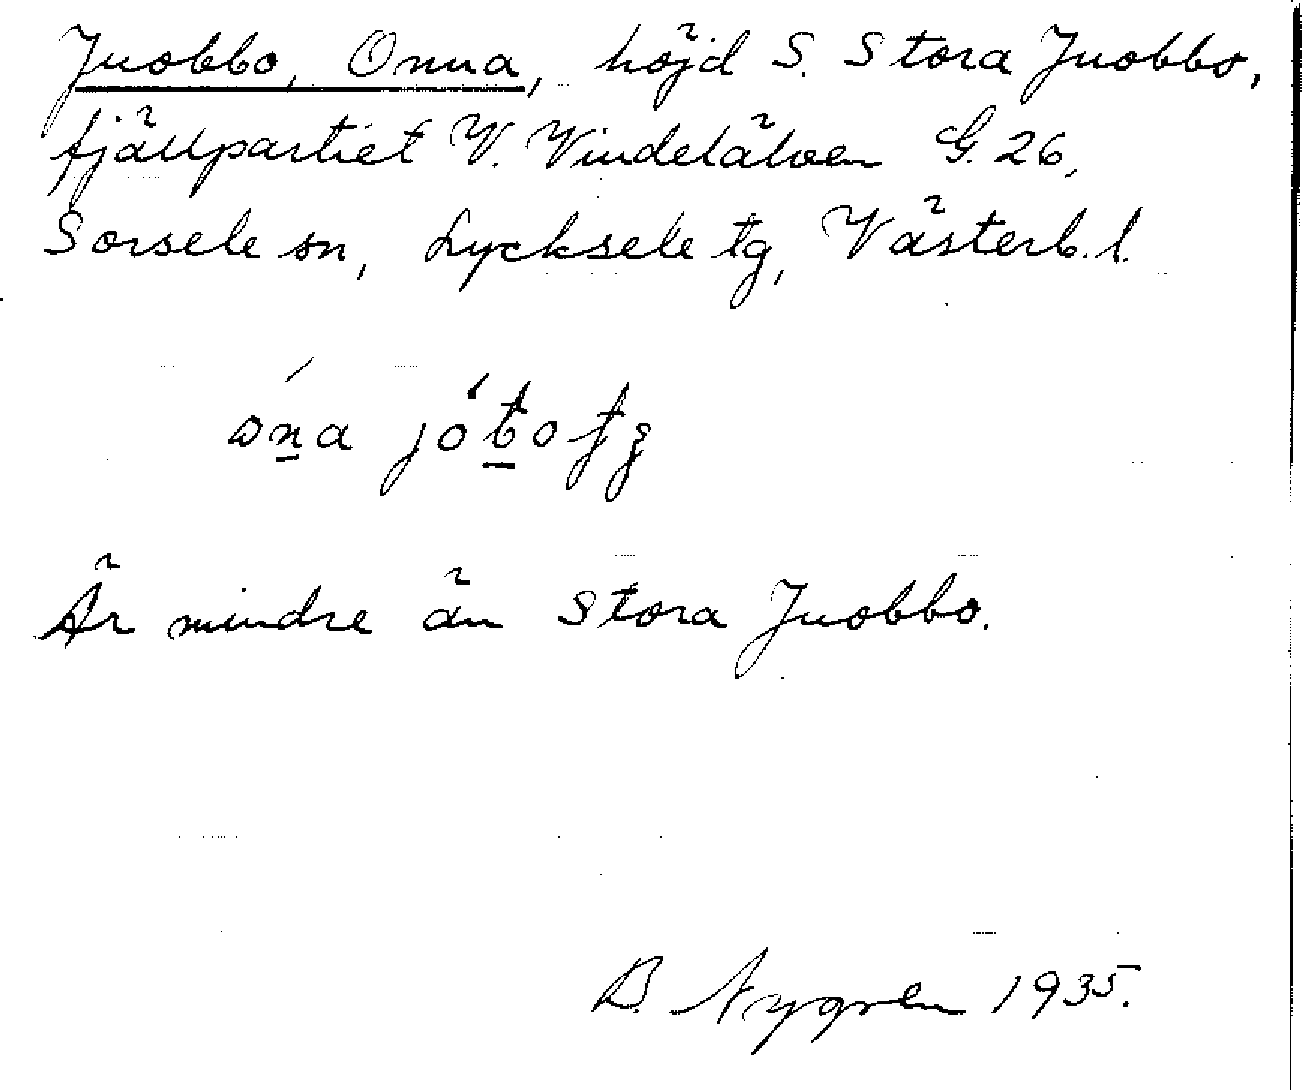 Juobbo, Onna, höjd S. Stora Juobbo,
fjällpartiet V. Vindelälven G. 26,
Sorsele sn, Lycksele tg, Västerb. l.
Är mindre än Stora Juobbo.
B. Nygren 1935.